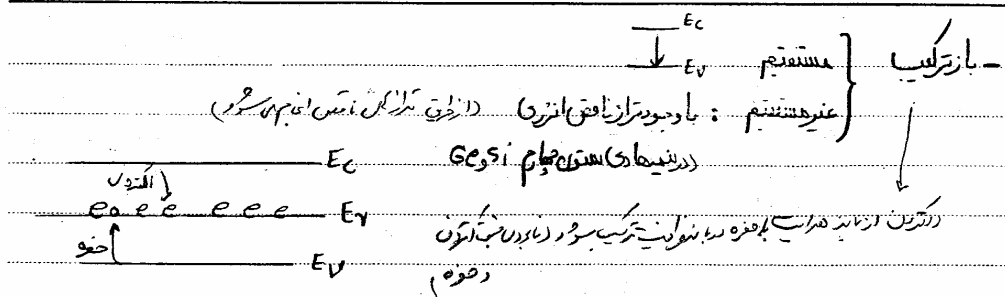 - بازترکیب { مستقیم Ec Ev
غیرمستقیم : با وجود تراز ناقص انرژی (از طریق ترازهای ناقص انجام می‌شود)
(در نیمه‌هادی ستون چهارم Si و Ge)
Ec
الکترون
e o e e e e e Er
الکترون از باند هدایت با حفره در باند ظرفیت ترکیب می‌شود (نابودی جفت الکترون
حفره Ev و حفره)